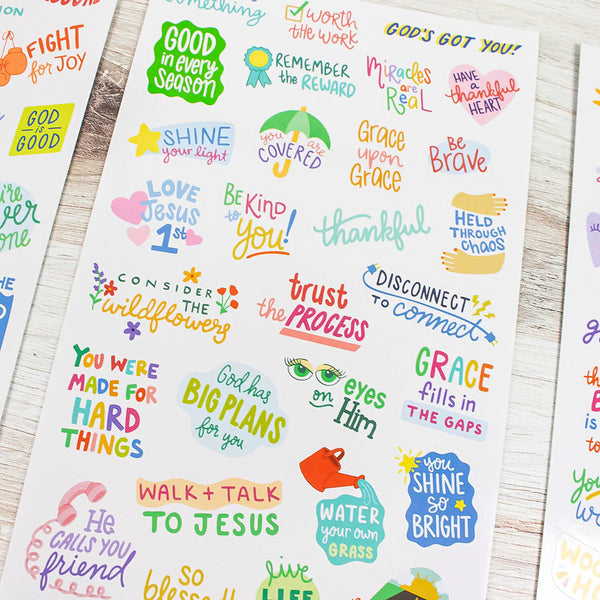 FIGHT
for JOY
GOD
is
GOOD
one
THE
something
worth
the work
GOD'S GOT YOU!
GOOD
in every
SEASON
REMEMBER
the REWARD
Miracles
are
Real
HAVE a
thankful
HEART
SHINE
your light
you are
COVERED
Grace
upon
Grace
Be
Brave
LOVE
Jesus
1st
BE KIND
to you!
thankful
HELD
THROUGH
CHAOS
CONSIDER
THE
wildflowers
trust
the PROCESS
DISCONNECT
TO connect
YOU WERE
MADE FOR
HARD
THINGS
God has
BIG PLANS
for you
eyes
on Him
GRACE
fills in
THE GAPS
He
CALLS YOU
friend
WALK + TALK
TO JESUS
WATER
your own
GRASS
you
SHINE
SO
BRIGHT
so
blessed
live
LIFE
is
to